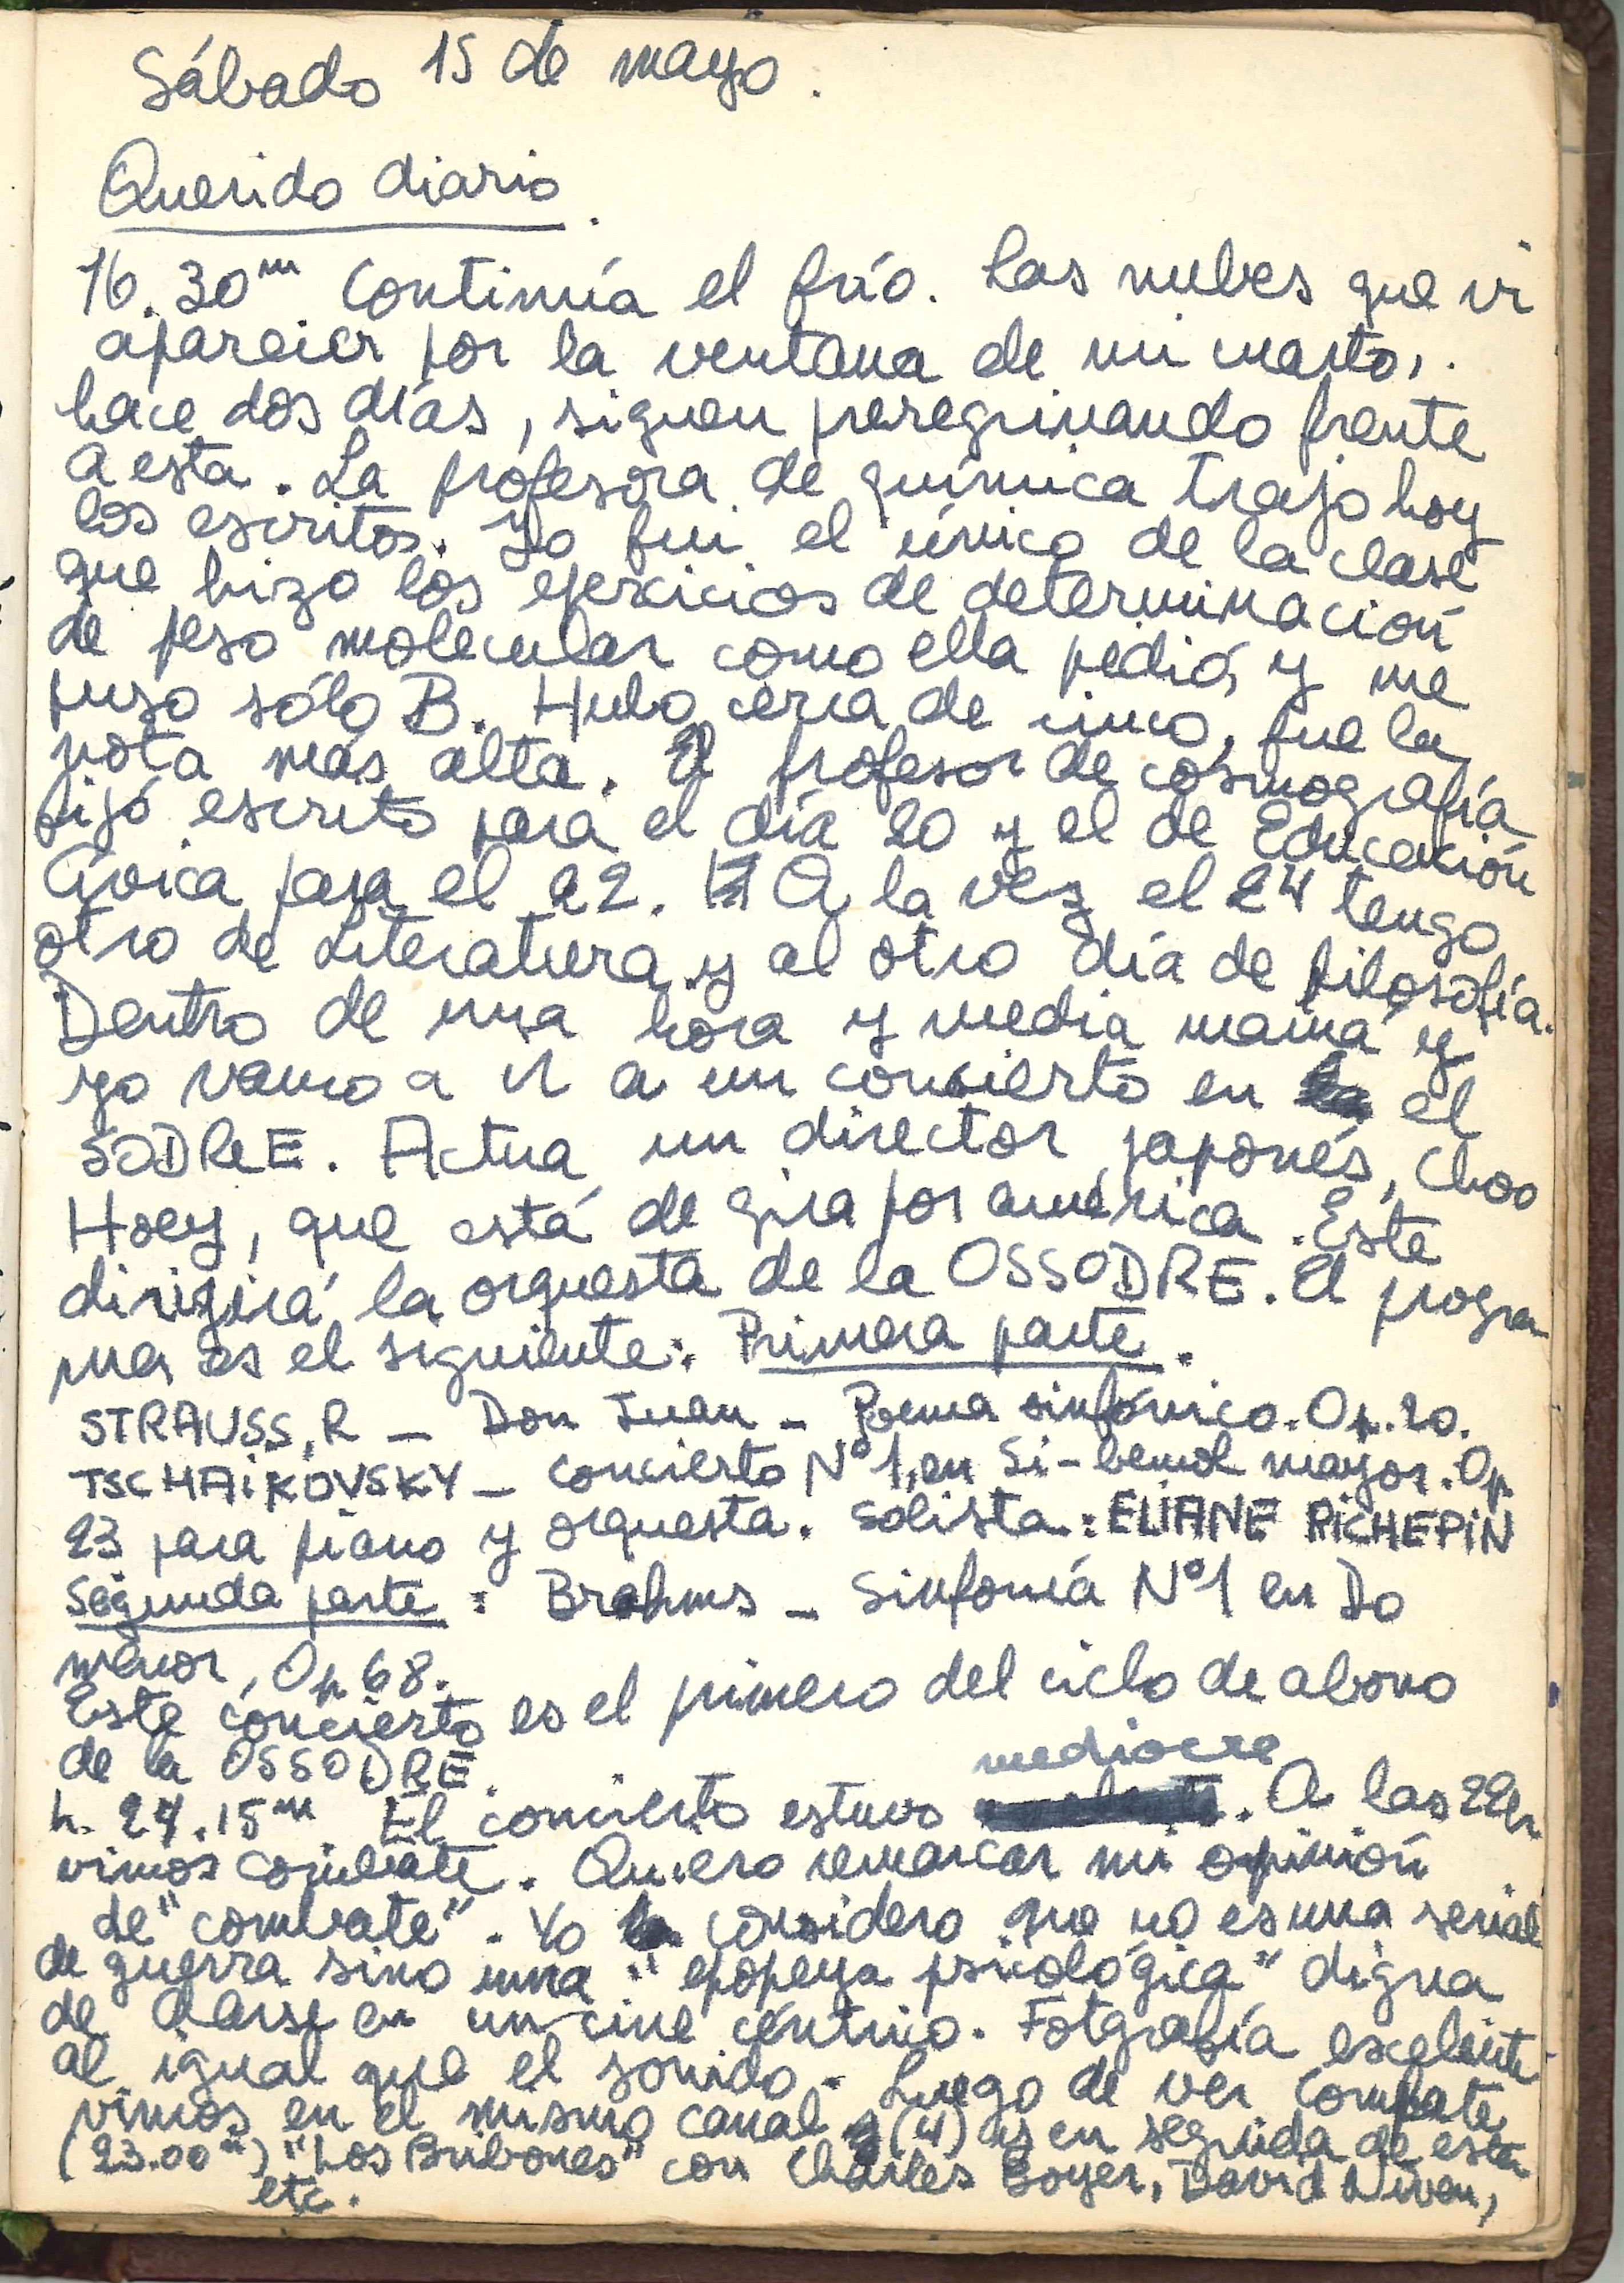 Sábado 15 de mayo.
Querido diario.
16.30m Continúa el frío. Las nubes que vi
aparecer por la ventana de mi cuarto,.
hace dos días, siguen peregrinando frente
a esta. La profesora de química trajo hoy
los escritos. Yo fui el único de la clase
que hizo los ejercicios de determinación
de peso molecular como ella pedió, y me
puso sólo B. Hubo cerca de cinco, fue la
nota más alta. El profesor de cosmografía
fijó escrito para el día 20 y el de Educación
Cívica para el 22. A la vez el 24 tengo
otro de Literatura y al otro día de filosofía.
Dentro de una hora y media mamá y
yo vamo a ir a un concierto en el
SODRE. Actua un director japonés, Choo
Hoey, que está de gira por américa. Este
dirigirá la orquesta de la OSSODRE. El progra
ma es el siguiente: Primera parte.
STRAUSS, R – Don Juan – Poema sinfónico. Op. 20.
TSCHAiKOVSKY – concierto Nº1, en Si-bemol mayor. Op
23 para piano y orquesta. Solista: ELIANE RiCHEPiN
Segunda parte: Brahms – Sinfonía Nº1 en Do
menor, Op 68.
Este concierto es el primero del ciclo de abono
de la OSSODRE.
mediocre
h. 24.15m. El concierto estuvo . A las 22h
vimos combate. Quiero remarcar mi opinión
de "combate". Yo considero que no es una serial
de guerra sino una "epopeya psicológica" digna
de darse en un cine céntrico. Fotgrafía excelente
al igual que el sonido. Luego de ver Combate
vimos en el mismo canal (4) as en seguida de esta
(23.00m) "Los Bribones" con Charles Boyer, David Niven,
etc.